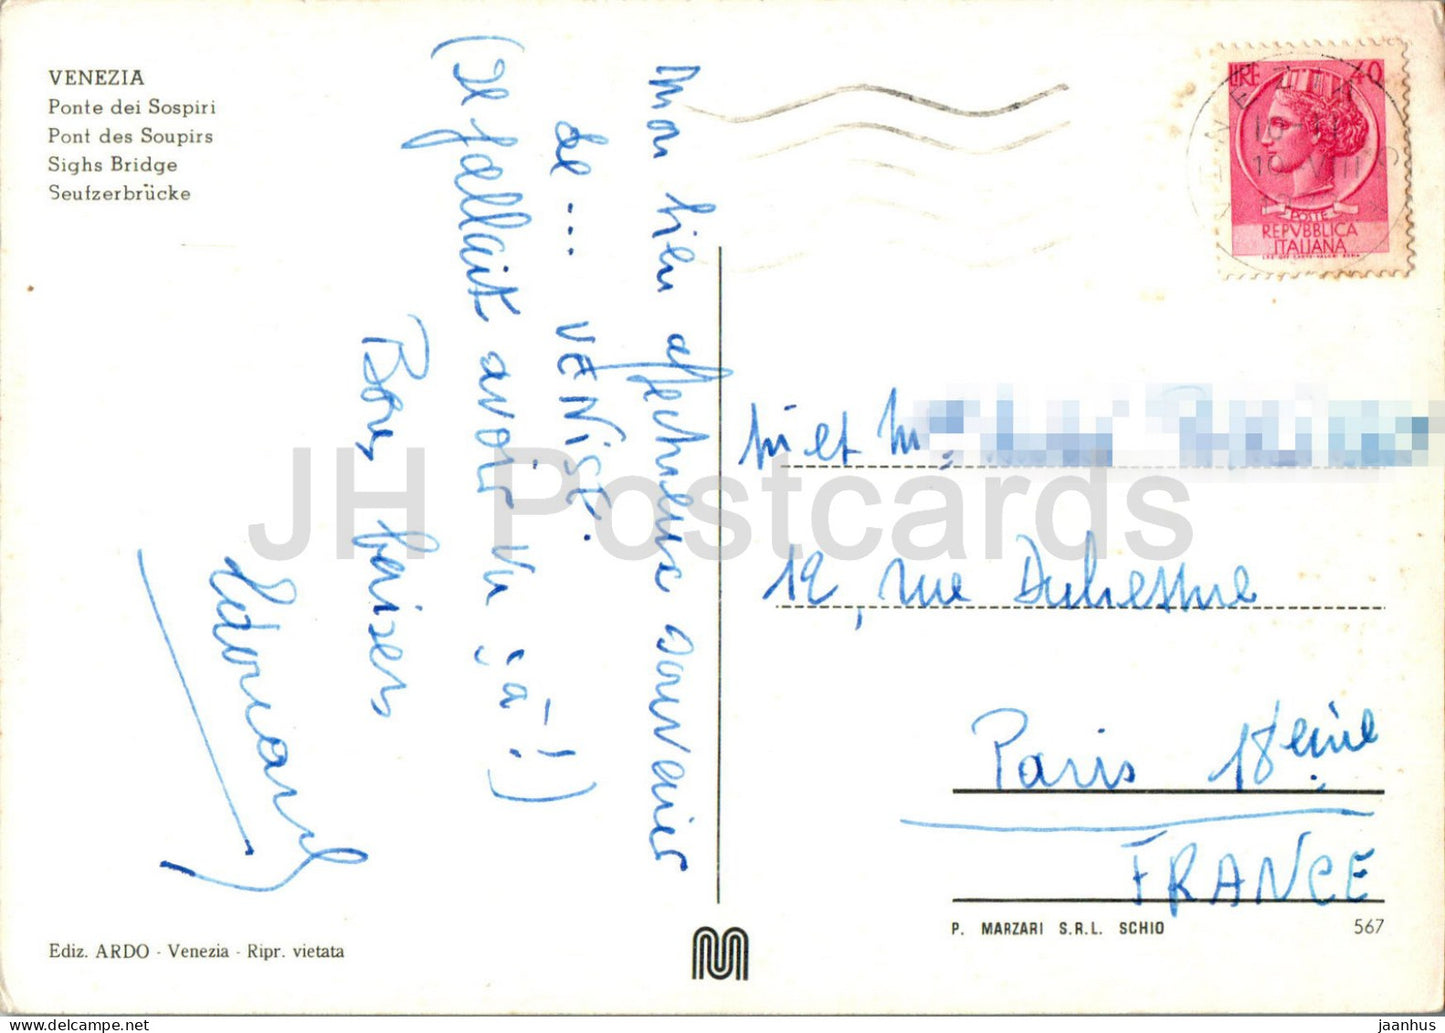 VENEZIA
Ponte dei Sospiri
Pont des Soupirs
Sighs Bridge
Seufzerbrücke
Mon bien affectueux souvenir
de --- VENISE.
(Il fallait avoir vu ça !)
Bons baisers
LIRE 40
POSTE
REPVBBLICA
ITALIANA
10 VIII
M et M
12, rue Duhesme
Paris 18ème
FRANCE
JH Postcards
P. MARZARI S.R.L. SCHIO
567
Ediz. ARDO - Venezia - Ripr. vietata
jaanhus
www.delcampe.net